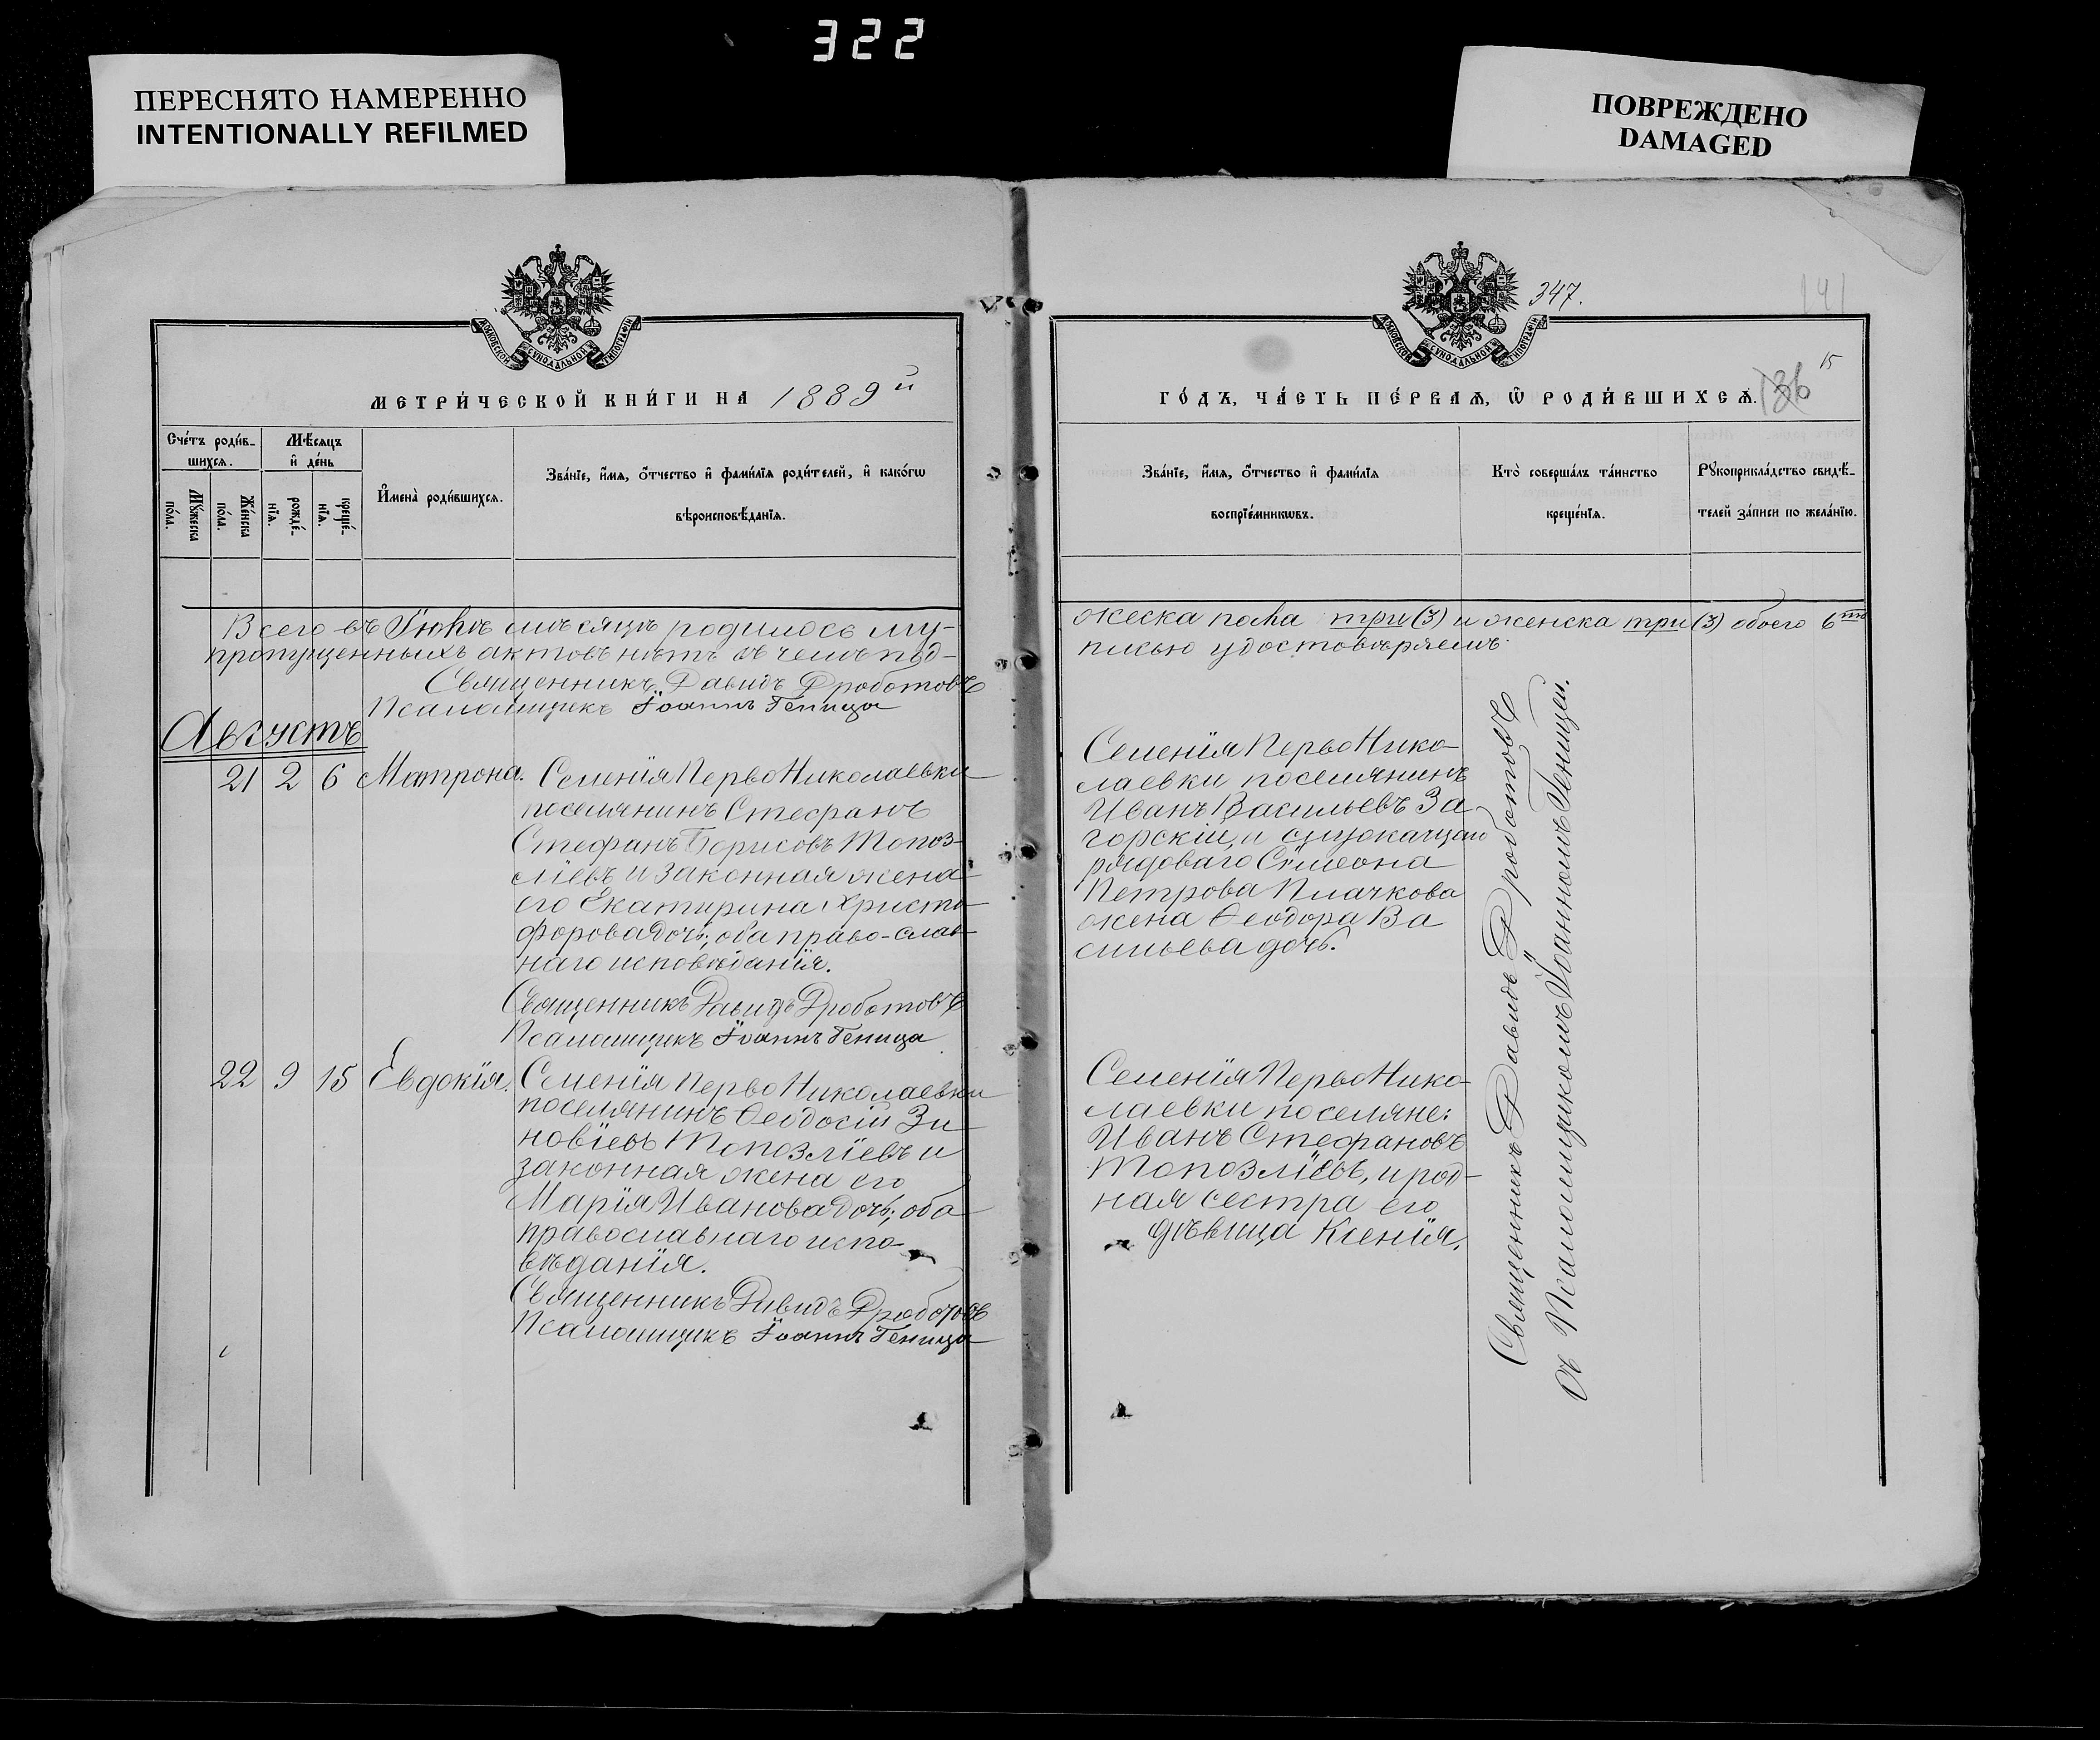 322
ПЕРЕСНЯТО НАМЕРЕННО
INTENTIONALLY REFILMED
ПОВРЕЖДЕНО
DAMAGED
МОСКОВСКОЙ СѴНОДАЛЬНОЙ ТИПОГРАФІИ
МЕТРИ́ЧЕСКОЙ КНИ́ГИ НА 1889й
Сче́тъ роди́в-
шихсѧ.
Мѣ́сѧцъ
и҆ де́нь
Мꙋ́жеска
по́ла.
Же́нска
по́ла.
рожде́-
нїѧ.
креще́-
нїѧ.
И҆мена̀ роди́вшихсѧ.
Зва́нїе, и҆́мѧ, ѻ҆́тчество и҆ фами́лїѧ роди́телей, и҆ како́гѡ
вѣроисповѣ́данїѧ.
Всего въ Іюлѣ мѣсяцѣ родилось му-
пропущенныхъ актовъ нѣтъ въ чемъ под-
Священникъ Давидъ Дроботовъ
Псаломщикъ Іоаннъ Геница
Августъ
21 2 6 Матрона. Селенія Перво Николаевки
поселянинъ Стефанъ
Стефанъ Борисовъ Топоз-
ліевъ и законная жена
его Екатирина Христо
форова дочь; оба право-слав
наго исповѣданія.
Священникъ Давидъ Дроботовъ
Псаломщикъ Іоаннъ Геница
22 9 15 Евдокія. Селенія Перво Николаевки
поселянинъ Ѳеодосій Зи
новіевъ Топозліевъ и
законная жена его
Марія Иванова дочь; оба
православнаго испо-
вѣданія.
Священникъ Давидъ Дроботовъ
Псаломщикъ Іоаннъ Геница
347.
141
МОСКОВСКОЙ СѴНОДАЛЬНОЙ ТИПОГРАФІИ
15
136
ГО́ДЪ, ЧА́СТЬ ПЕ́РВАѦ, Ѽ РОДИ́ВШИХСѦ.
Зва́нїе, и҆́мѧ, ѻ҆́тчество и҆ фами́лїѧ
воспрїе́мникѡвъ.
Кто̀ соверша́лъ та́инство
креще́нїѧ.
Рꙋкоприкла́дство свидѣ́-
телей за́писи по жела́нїю.
жеска пола три (3) и женска три (3) обоего 6ть
писью удостовѣряемъ.
Селенія Перво Нико-
лаевки поселянинъ
Иванъ Васильевъ За
горскій, и
рядоваго Сѵмеона
Петрова Плачкова
жена Ѳеодора Ва
сильева дочь.
Селенія Перво Нико-
лаевки поселяне:
Иванъ Стефановъ
Топозліевъ, и род-
ная сестра его
дѣвица Ксенія.
Священникъ Давидъ Дроботовъ
съ Псаломщикомъ Іоанномъ Геницей.